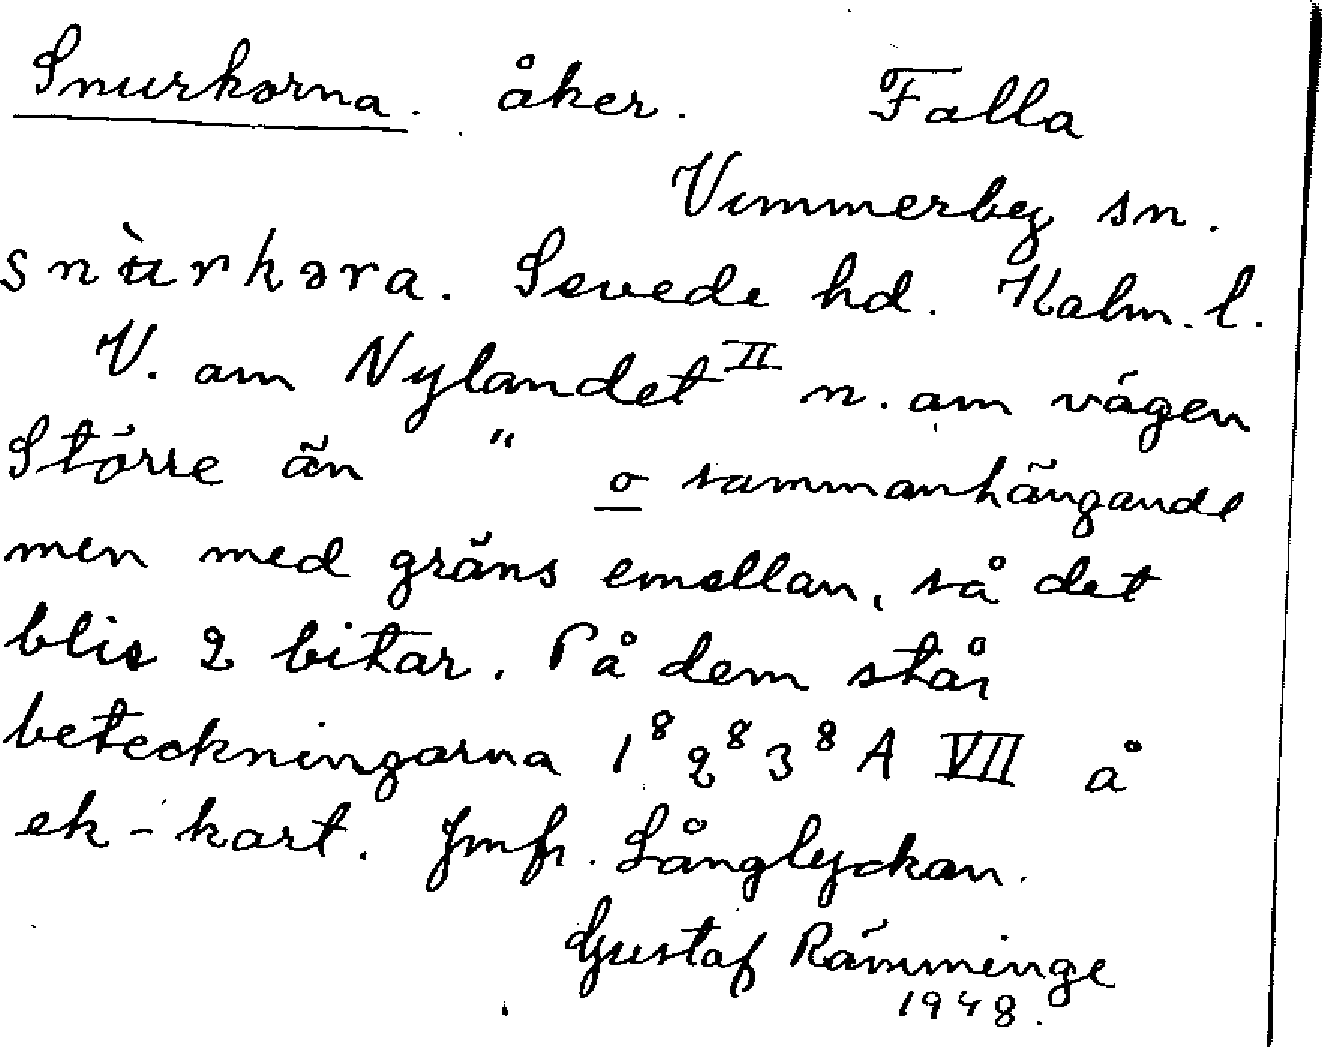 Snurkorna. åker. Falla
Vimmerby sn.
snùrkəra. Sevede hd. Kalm. l.
V. om Nylandet II n. om vägen
Större än " o sammanhängande
men med gräns emellan, så det
blir 2 bitar. På dem står
beteckningarna 1⁸ 2⁸ 3⁸ A VII å
ek-kart. Jmfr. Långlyckan.
Gustaf Rämminge
1948.